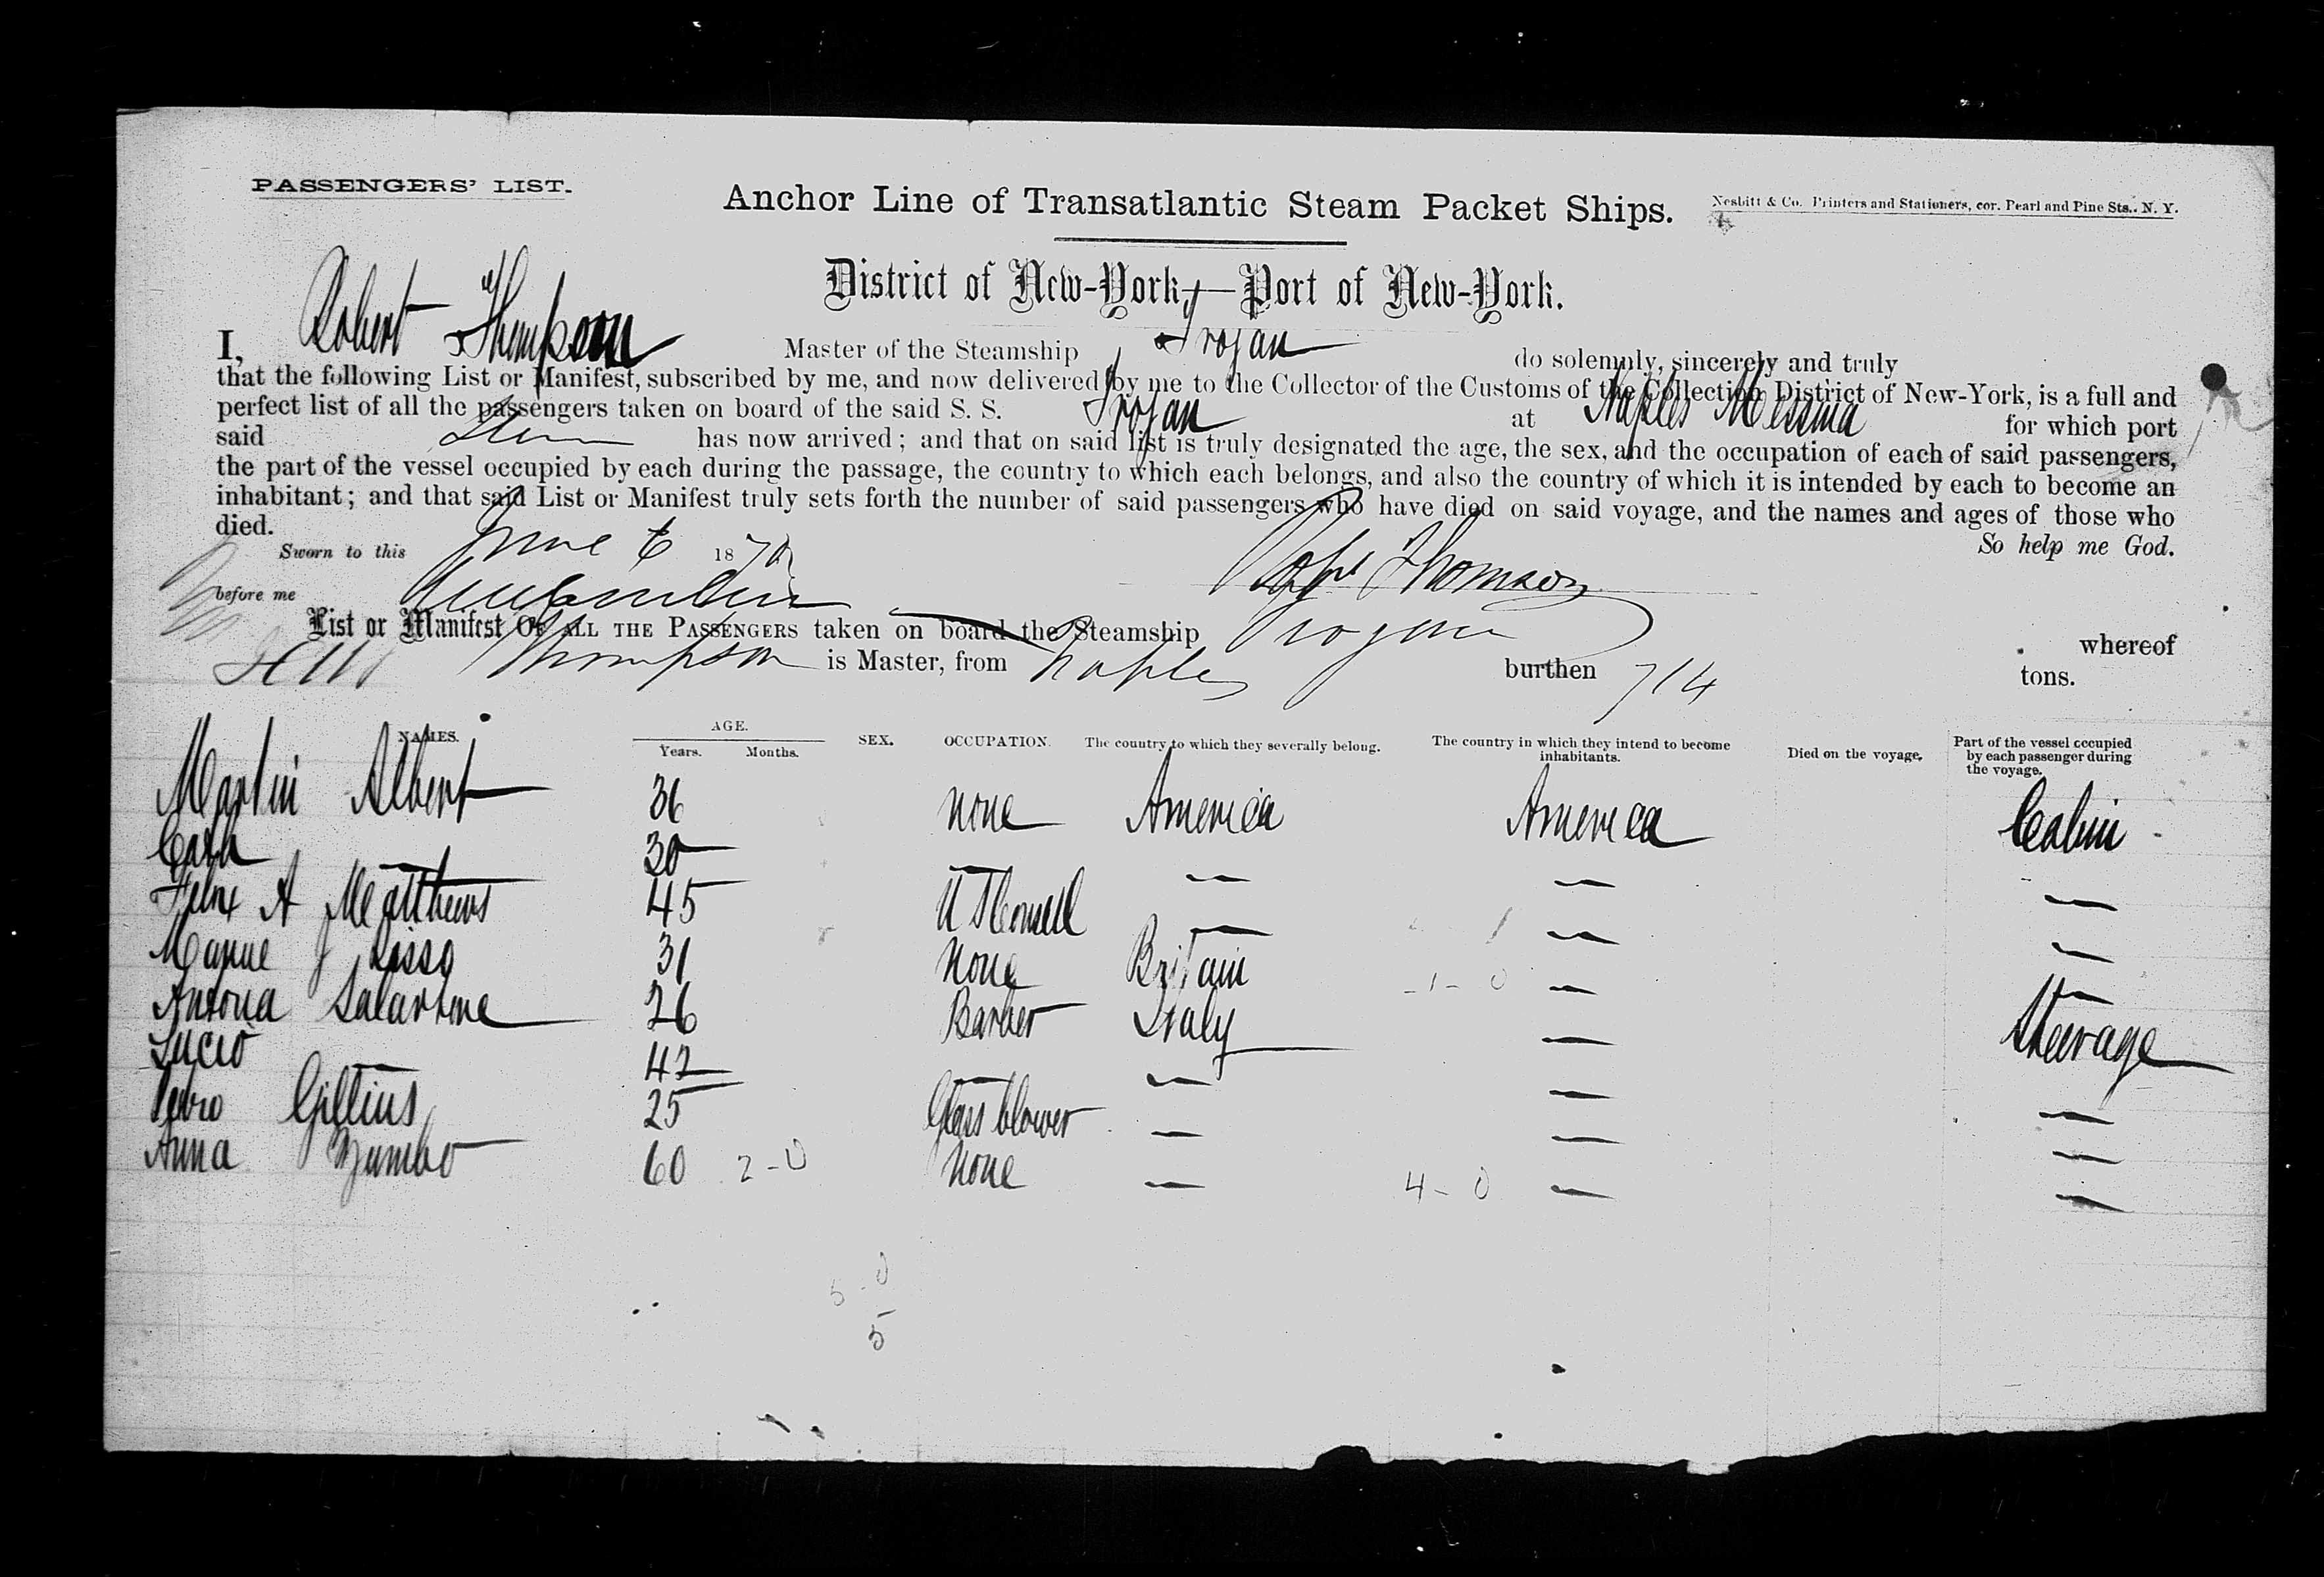 PASSENGERS' LIST.
Anchor Line of Transatlantic Steam Packet Ships.
Nesbitt & Co. Printers and Stationers, cor. Pearl and Pine Sts., N. Y.
District of New-York,—Port of New-York.
I, Robert Thompson Master of the Steamship Trojan do solemnly, sincerely and truly
that the following List or Manifest, subscribed by me, and now delivered by me to the Collector of the Customs of the Collection District of New-York, is a full and
perfect list of all the passengers taken on board of the said S. S. Trojan at Naples Messina for which port
said has now arrived; and that on said list is truly designated the age, the sex, and the occupation of each of said passengers,
the part of the vessel occupied by each during the passage, the country to which each belongs, and also the country of which it is intended by each to become an
inhabitant; and that said List or Manifest truly sets forth the number of said passengers who have died on said voyage, and the names and ages of those who
died. So help me God.
Sworn to this June 6 187 Thomson
before me
List or Manifest OF ALL THE PASSENGERS taken on board the Steamship Trojan whereof
Thompson is Master, from Naples burthen 714 tons.
NAMES. AGE. Years. Months. SEX. OCCUPATION. The country to which they severally belong. The country in which they intend to become inhabitants. Died on the voyage. Part of the vessel occupied by each passenger during the voyage.
Martin Albert 36 none America America Cabin
30 — — — —
Felix A Matthews 45 U S Consul — — —
31 None Britain — —
26 Barber Italy — Steerage
Lucio — 42 — — — —
Pedro 25 Glass blower — — —
Anna Zumbo 60 2-0 None — 4-0 — —
5-0
5